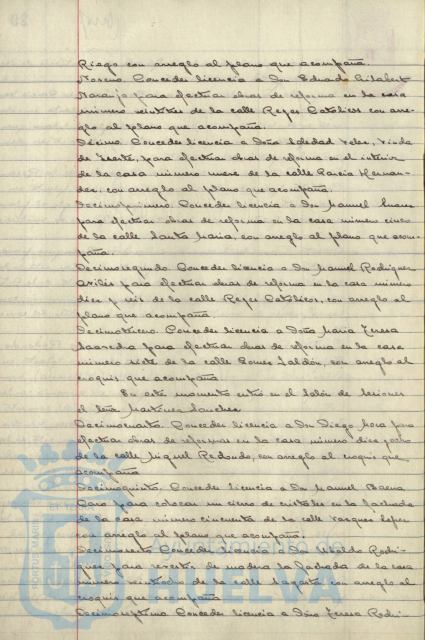 Riego con arreglo al plano que acompaña.
Noveno. Conceder licencia a Don Eduardo Gilabert
Naranjo para efectuar obras de reforma en la casa
número veintitres de la calle Reyes Católicos con arre-
glo al plano que acompaña.
Décimo. Conceder licencia a Doña Soledad Velez, Viuda
de Duarte, para efectuar obras de reforma en el interior
de la casa número nueve de la calle Garcia Hernan-
dez, con arreglo al plano que acompaña.
Decimoprimero. Conceder licencia a Don Manuel Suarez
para efectuar obras de reforma en la casa numero cinco
de la calle Santa Maria, con arreglo al plano que acom-
paña.
Decimosegundo. Conceder licencia a Don Manuel Rodriguez
Avilés para efectuar obras de reforma en la casa número
diez y seis de la calle Reyes Católicos, con arreglo al
plano que acompaña.
Decimotercero. Conceder licencia a Doña Maria Teresa
Saavedra para efectuar obras de reforma en la casa
número siete de la calle Gomez Jaldón, con arreglo al
croquis que acompaña
En este momento entró en el Salón de Sesiones
el Señor Martinez Sanchez
Decimocuarto. Conceder licencia a Don Diego Mora para
efectuar obras de reformas en la casa número diez y ocho
de la calle Miguel Redondo, con arreglo al croquis que
acompaña
Decimoquinto. Conceder licencia a Don Manuel Baena
Caro para colocar un cierro de cristales en la fachada
de la casa número cincuenta de la calle Vazquez Lopez
con arreglo al plano que acompaña.
Decimosexto Conceder licencia a Don Ubaldo Rodri-
guez para revestir de madera la fachada de la casa
número veintiocho de la calle Sagasta con arreglo al
croquis que acompaña
Decimoséptimo Conceder licencia a Doña Teresa Rodri-